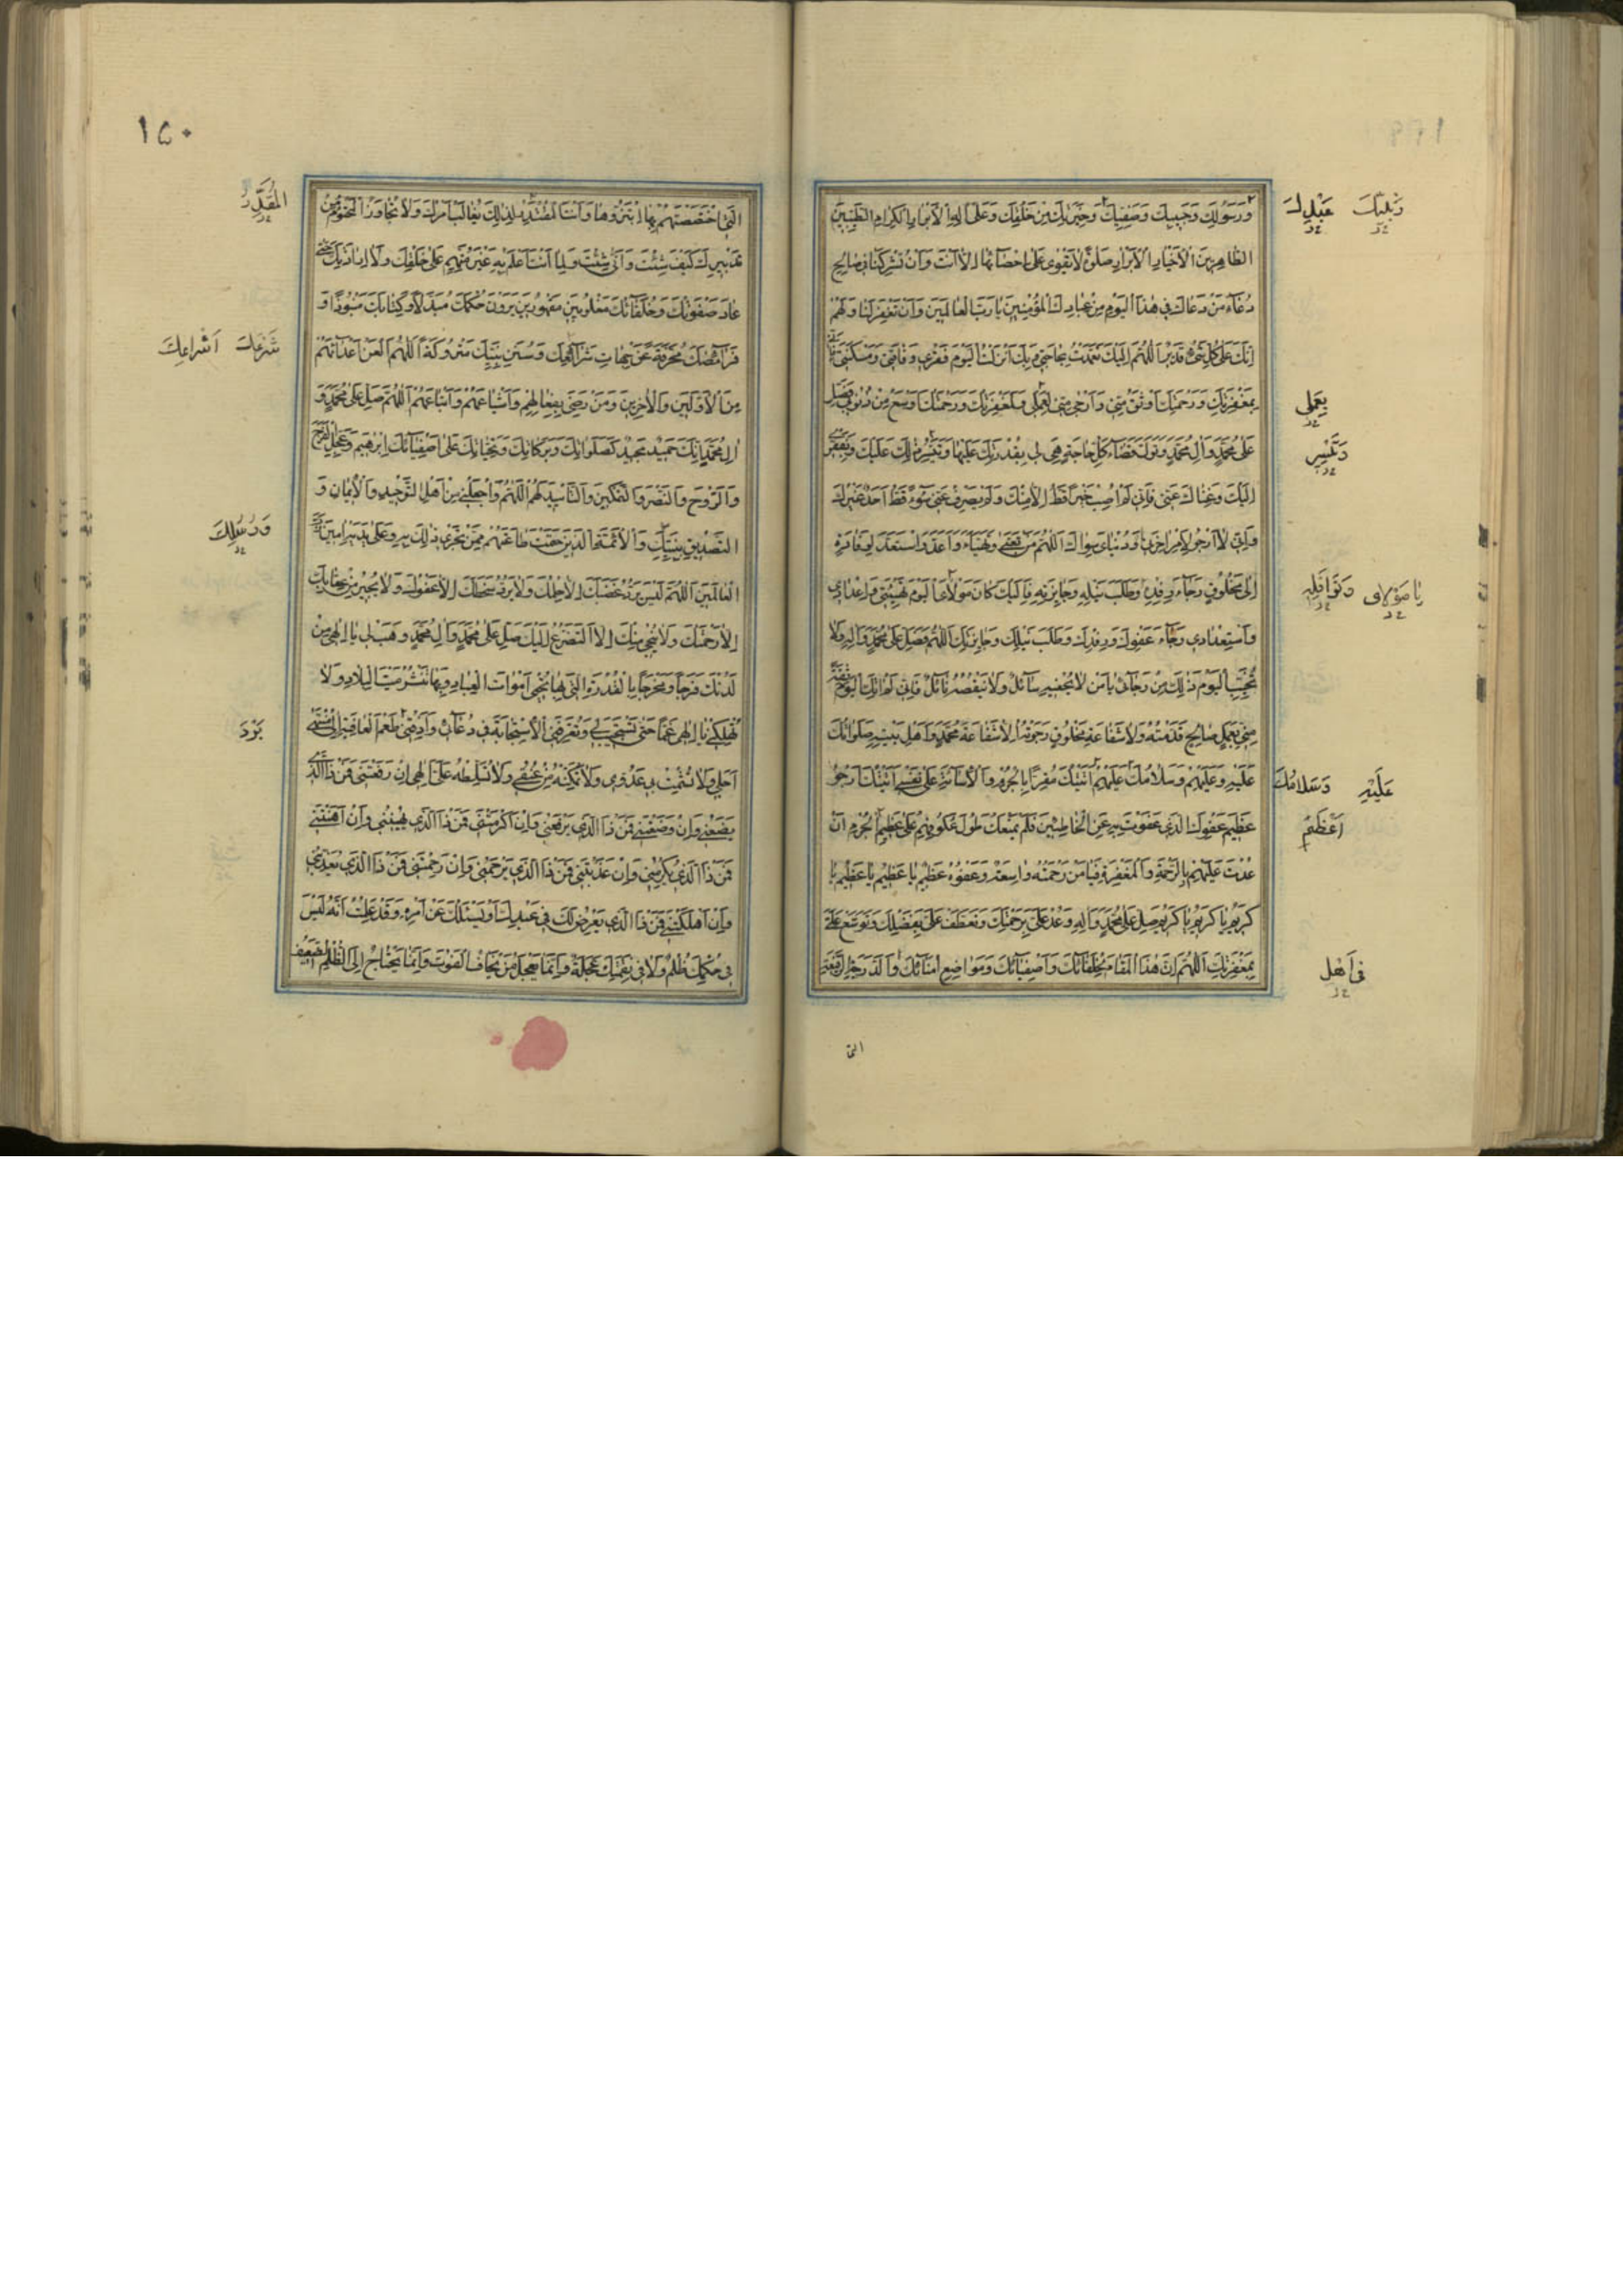 وَرَسُولِكَ وَحَبِيبِكَ وَصَفِيِّكَ وَخِيَرَتِكَ مِنْ خَلْقِكَ وَعَلَى آلِ الْأَبْرَارِ الْكِرَامِ الطَّيِّبِينَ
الطَّاهِرِينَ الْأَخْيَارِ الْأَبْرَارِ صَلٰوةً لَا يَقْوٰى عَلٰى إِحْصَائِهَا إِلَّا أَنْتَ وَأَنْ تُشْرِكَنَا فِي صَالِحِ
دُعَاءِ مَنْ دَعَاكَ فِي هٰذَا الْيَوْمِ مِنْ عِبَادِكَ الْمُؤْمِنِينَ يَا رَبَّ الْعَالَمِينَ وَأَنْ تَغْفِرَ لَنَا وَلَهُمْ
إِنَّكَ عَلٰى كُلِّ شَيْءٍ قَدِيرٌ اللّٰهُمَّ إِلَيْكَ تَعَمَّدْتُ بِحَاجَتِي وَبِكَ أَنْزَلْتُ الْيَوْمَ فَقْرِي وَفَاقَتِي وَمَسْكَنَتِي
بِمَغْفِرَتِكَ وَرَحْمَتِكَ أَوْثَقُ مِنِّي وَأَرْجٰى مِنِّي لِعَمَلِي وَلَمَغْفِرَتُكَ وَرَحْمَتُكَ أَوْسَعُ مِنْ ذُنُوبِي فَصَلِّ
عَلٰى مُحَمَّدٍ وَآلِ مُحَمَّدٍ وَتَوَلَّ قَضَاءَ كُلِّ حَاجَةٍ هِيَ لِي بِقُدْرَتِكَ عَلَيْهَا وَتَيَسُّرِ ذٰلِكَ عَلَيْكَ وَبِفَقْرِي
إِلَيْكَ وَغِنَاكَ عَنِّي فَإِنِّي لَمْ أُصِبْ خَيْرًا قَطُّ إِلَّا مِنْكَ وَلَمْ يَصْرِفْ عَنِّي سُوءً قَطُّ أَحَدٌ غَيْرُكَ
وَإِنِّي لَا أَرْجُو لِأَمْرِ آخِرَتِي وَدُنْيَايَ سِوَاكَ اللّٰهُمَّ مَنْ تَعَبَّى وَتَهَيَّأَ وَأَعَدَّ وَاسْتَعَدَّ لِوِفَادَةٍ
إِلٰى مَخْلُوقٍ رَجَاءَ رِفْدِهِ وَطَلَبَ نَيْلِهِ وَجَائِزَتِهِ فَإِلَيْكَ كَانَ مَوْلَايَ الْيَوْمَ تَهْيِئَتِي وَإِعْدَادِي
وَاسْتِعْدَادِي رَجَاءَ عَفْوِكَ وَرِفْدِكَ وَطَلَبَ نَيْلِكَ وَجَائِزَتِكَ اللّٰهُمَّ فَصَلِّ عَلٰى مُحَمَّدٍ وَآلِهِ وَلَا
تُخَيِّبِ الْيَوْمَ ذٰلِكَ مِنْ رَجَائِي يَا مَنْ لَا يُحْفِيهِ سَائِلٌ وَلَا يَنْقُصُهُ نَائِلٌ فَإِنِّي لَمْ آتِكَ الْيَوْمَ ثِقَةً
مِنِّي بِعَمَلٍ صَالِحٍ قَدَّمْتُهُ وَلَا شَفَاعَةِ مَخْلُوقٍ رَجَوْتُهُ إِلَّا شَفَاعَةَ مُحَمَّدٍ وَأَهْلِ بَيْتِهِ صَلَوَاتُكَ
عَلَيْهِ وَعَلَيْهِمْ وَسَلَامُكَ عَلَيْهِمْ أَتَيْتُكَ مُقِرًّا بِالْجُرْمِ وَالْإِسَاءَةِ عَلٰى نَفْسِي أَتَيْتُكَ أَرْجُو
عَظِيمَ عَفْوِكَ الَّذِي عَفَوْتَ بِهِ عَنِ الْخَاطِئِينَ فَلَمْ يَمْنَعْكَ طُولُ عُكُوفِهِمْ عَلٰى عَظِيمِ الْجُرْمِ أَنْ
عُدْتَ عَلَيْهِمْ بِالرَّحْمَةِ وَالْمَغْفِرَةِ فَيَا مَنْ رَحْمَتُهُ وَاسِعَةٌ وَعَفْوُهُ عَظِيمٌ يَا عَظِيمُ يَا عَظِيمُ يَا
كَرِيمُ يَا كَرِيمُ يَا كَرِيمُ صَلِّ عَلٰى مُحَمَّدٍ وَآلِهِ وَعُدْ عَلَيَّ بِرَحْمَتِكَ وَتَعَطَّفْ عَلَيَّ بِفَضْلِكَ وَتَوَسَّعْ عَلَيَّ
بِمَغْفِرَتِكَ اللّٰهُمَّ إِنَّ هٰذَا الْمَقَامَ لِخُلَفَائِكَ وَأَصْفِيَائِكَ وَمَوَاضِعَ أُمَنَائِكَ وَالدَّرَجَةِ الرَّفِيعَةِ
عَبْدِكَ
يَا مَوْلَايَ وَنَوَافِلِهِ
عَلَيْهِ وَسَلَامُكَ
فِي أَهْلِ
الَّتِي
١٥٠
الَّتِي اخْتَصَصْتَهُمْ بِهَا ابْتَزُّوهَا وَأَنْتَ الْمُقَدِّرُ لِذٰلِكَ لَا يُغَالَبُ أَمْرُكَ وَلَا يُجَاوَزُ الْمَحْتُومُ مِنْ
تَدْبِيرِكَ كَيْفَ شِئْتَ وَأَنّٰى شِئْتَ وَلِمَا أَنْتَ أَعْلَمُ بِهِ غَيْرُ مُتَّهَمٍ عَلٰى خَلْقِكَ وَلَا لِإِرَادَتِكَ حَتّٰى
عَادَ صَفْوَتُكَ وَخُلَفَاؤُكَ مَغْلُوبِينَ مَقْهُورِينَ يَرَوْنَ حُكْمَكَ مُبَدَّلًا وَكِتَابَكَ مَنْبُوذًا وَ
فَرَائِضَكَ مُحَرَّفَةً عَنْ جِهَاتِ شَرَائِعِكَ وَسُنَنَ نَبِيِّكَ مَتْرُوكَةً اللّٰهُمَّ الْعَنْ أَعْدَاءَهُمْ
مِنَ الْأَوَّلِينَ وَالْآخِرِينَ وَمَنْ رَضِيَ بِفِعَالِهِمْ وَأَشْيَاعَهُمْ وَأَتْبَاعَهُمْ اللّٰهُمَّ صَلِّ عَلٰى مُحَمَّدٍ وَ
آلِ مُحَمَّدٍ إِنَّكَ حَمِيدٌ مَجِيدٌ كَصَلَوَاتِكَ وَبَرَكَاتِكَ وَتَحِيَّاتِكَ عَلٰى أَصْفِيَائِكَ إِبْرٰهِيمَ وَعَجِّلِ الْفَرَجَ
وَالرَّوْحَ وَالنَّصْرَ وَالتَّمْكِينَ وَالتَّأْيِيدَ لَهُمْ اللّٰهُمَّ وَاجْعَلْنِي مِنْ أَهْلِ التَّوْحِيدِ وَالْإِيمَانِ وَ
التَّصْدِيقِ بِنَبِيِّكَ وَالْأَئِمَّةِ الَّذِينَ حَتَمْتَ طَاعَتَهُمْ مِمَّنْ يَجْرِي ذٰلِكَ بِهِ وَعَلٰى يَدَيْهِ آمِينَ رَبَّ
الْعَالَمِينَ اللّٰهُمَّ لَيْسَ يَرُدُّ غَضَبَكَ إِلَّا حِلْمُكَ وَلَا يَرُدُّ سَخَطَكَ إِلَّا عَفْوُكَ وَلَا يُجِيرُ مِنْ عِقَابِكَ
إِلَّا رَحْمَتُكَ وَلَا يُنْجِي مِنْكَ إِلَّا التَّضَرُّعُ إِلَيْكَ صَلِّ عَلٰى مُحَمَّدٍ وَآلِ مُحَمَّدٍ وَهَبْ لِي يَا إِلٰهِي مِنْ
لَدُنْكَ فَرَجًا وَمَخْرَجًا بِالْقُدْرَةِ الَّتِي بِهَا تُحْيِي أَمْوَاتَ الْعِبَادِ وَبِهَا تَنْشُرُ مَيْتَ الْبِلَادِ وَلَا
تُهْلِكْنِي يَا إِلٰهِي غَمًّا حَتّٰى تَسْتَجِيبَ لِي وَتُعَرِّفَنِي الْاِسْتِجَابَةَ فِي دُعَائِي وَأَذِقْنِي طَعْمَ الْعَافِيَةِ إِلٰى مُنْتَهٰى
أَجَلِي وَلَا تُشْمِتْ بِي عَدُوِّي وَلَا تُمَكِّنْهُ مِنْ عُنُقِي وَلَا تُسَلِّطْهُ عَلَيَّ إِلٰهِي إِنْ رَفَعْتَنِي فَمَنْ ذَا الَّذِي
يَضَعُنِي وَإِنْ وَضَعْتَنِي فَمَنْ ذَا الَّذِي يَرْفَعُنِي وَإِنْ أَكْرَمْتَنِي فَمَنْ ذَا الَّذِي يُهِينُنِي وَإِنْ أَهَنْتَنِي
فَمَنْ ذَا الَّذِي يُكْرِمُنِي وَإِنْ عَذَّبْتَنِي فَمَنْ ذَا الَّذِي يَرْحَمُنِي وَإِنْ رَحِمْتَنِي فَمَنْ ذَا الَّذِي يُعَذِّبُنِي
وَإِنْ أَهْلَكْتَنِي فَمَنْ ذَا الَّذِي يَعْرِضُ لَكَ فِي عَبْدِكَ أَوْ يَسْئَلُكَ عَنْ أَمْرِهِ وَقَدْ عَلِمْتُ أَنَّهُ لَيْسَ
فِي حُكْمِكَ ظُلْمٌ وَلَا فِي نَقِمَتِكَ عَجَلَةٌ وَإِنَّمَا يَعْجَلُ مَنْ يَخَافُ الْفَوْتَ وَإِنَّمَا يَحْتَاجُ إِلَى الظُّلْمِ الضَّعِيفُ
الْمُقَدِّرُ